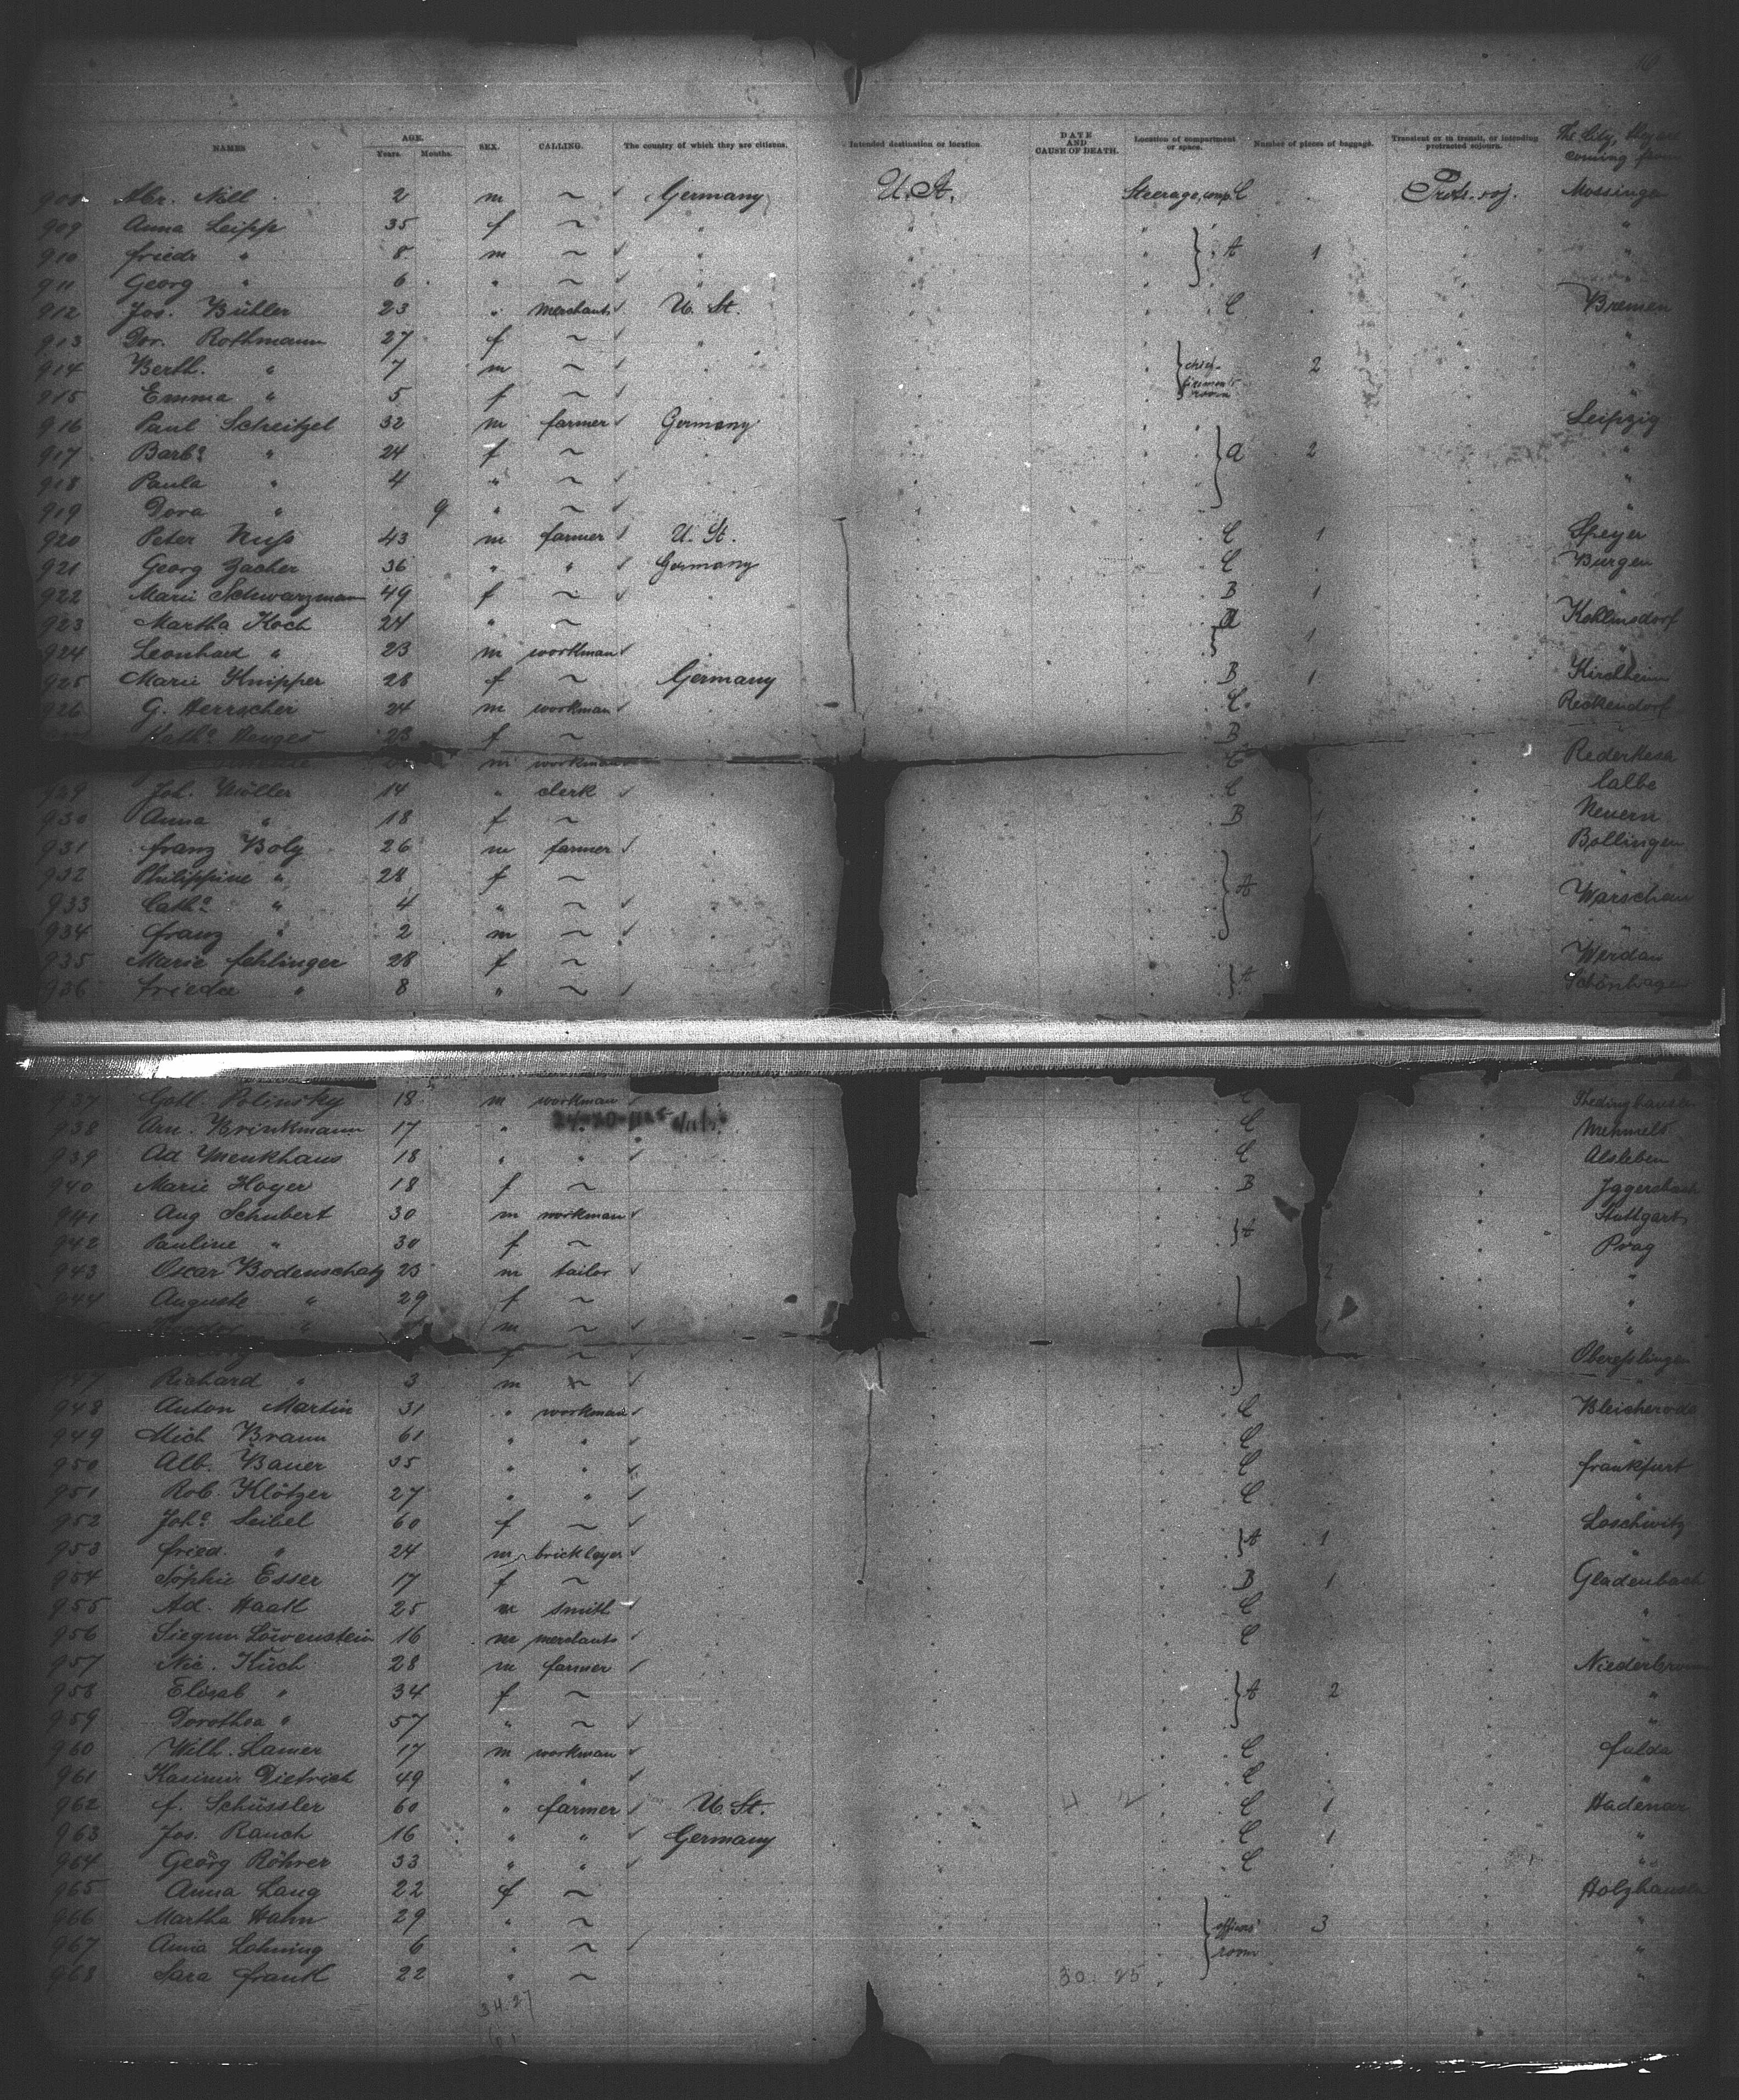 NAMES AGE. Years. Months. SEX. CALLING. The country of which they are citizens. Intended destination or location. DATE AND CAUSE OF DEATH. Location of compartment or space. Number of pieces of baggage. Transient or in transit, or intending protracted sojourn. The City, they are coming from
908 Nill 2 m ~ Germany U. St. Steerage, comp. C Prtr. soj. Mossingen
909 Anna Leipp 35 f ~ "
910 Friedr " 8 m ~ A 1 "
911 Georg " 6 " ~ "
912 Jos. Bühler 23 " merchant U. St. C Bremen
913 Dor. Rothmann 27 f ~ " "
914 Berth. " 7 m ~ chief firemen's room 2 "
915 Emma " 5 f ~ "
916 Paul Scheitzel 32 m farmer Germany Leipzig
917 Barba " 24 f ~ A 2 "
918 Paula " 4 " ~ "
919 Dora " 9 " ~ "
920 Peter Nuss 43 m farmer U. St. C 1 Speyer
921 Georg Zacher 36 " " Germany C Burgen
922 Marie Schwarzmann 49 f ~ B 1 "
923 Martha Koch 24 " ~ A Kohlmsdorf
924 Leonhard " 23 m workman 1 "
925 Marie Knipper 28 f ~ Germany B 1 Kirchheim
926 G. Herrscher 24 m workman C Reckendorf
Katha Menges 23 f ~ B
m workman C Rederkesa
929 Joh. Müller 14 " clerk C Calbe
930 Anna " 18 f ~ B 1 Neuern
931 Franz Boly 26 m farmer 1 Bollingen
932 Philippine " 28 f ~ A
933 Catha " 4 " ~ Warschau
934 Franz " 2 m ~ "
935 Marie Fehlinger 28 f ~ Werdau
936 Frieda " 8 " ~ A Schönhagen
937 Gotl. Polinsky 18 m workman C Thedinghausen
938 Arn. Brinkmann 17 " " C Mehmels
939 Ad Menkhaus 18 " " C Alsleben
940 Marie Hoyer 18 f ~ B Iggersbach
941 Aug Schubert 30 m workman Stuttgart
942 Pauline " 30 f ~ A Prag
943 Oscar Bodenschatz 25 m tailor 2 "
944 Auguste " 29 f ~ "
" m ~ "
f ~ Oberesslingen
947 Richard " 3 m ~ "
948 Anton Martin 31 " workman C Bleicherode
949 Mich Braun 61 " " C "
950 Alb. Bauer 35 " " C Frankfurt
951 Rob. Klötzer 27 " " C "
952 Joha Seibel 60 f ~ Loschwitz
953 Fried. " 24 m bricklayer A 1 "
954 Sophie Esser 17 f ~ B 1 Gladenbach
955 Ad. Haak 25 m smith C "
956 Siegm Löwenstein 16 m merchant C
957 Nic. Küch 28 m farmer Niederbronn
958 Elisab " 34 f ~ A 2 "
959 Dorothea " 57 " ~ "
960 Wilh. Lamer 17 m workman C Fulda
961 Kasimir Dietrich 49 " " C "
962 F. Schüssler 60 " farmer U. St. C 1 Hadenar
963 Jos. Rauch 16 " " Germany C 1 "
964 Georg Röhrer 33 " " C "
965 Anna Lang 22 f ~ Holzhausen
966 Martha Hahn 29 " ~ officers' room 3 "
967 Anna Lohning 6 " ~ "
968 Sara Frank 22 " ~ 30. 25 "
34 27